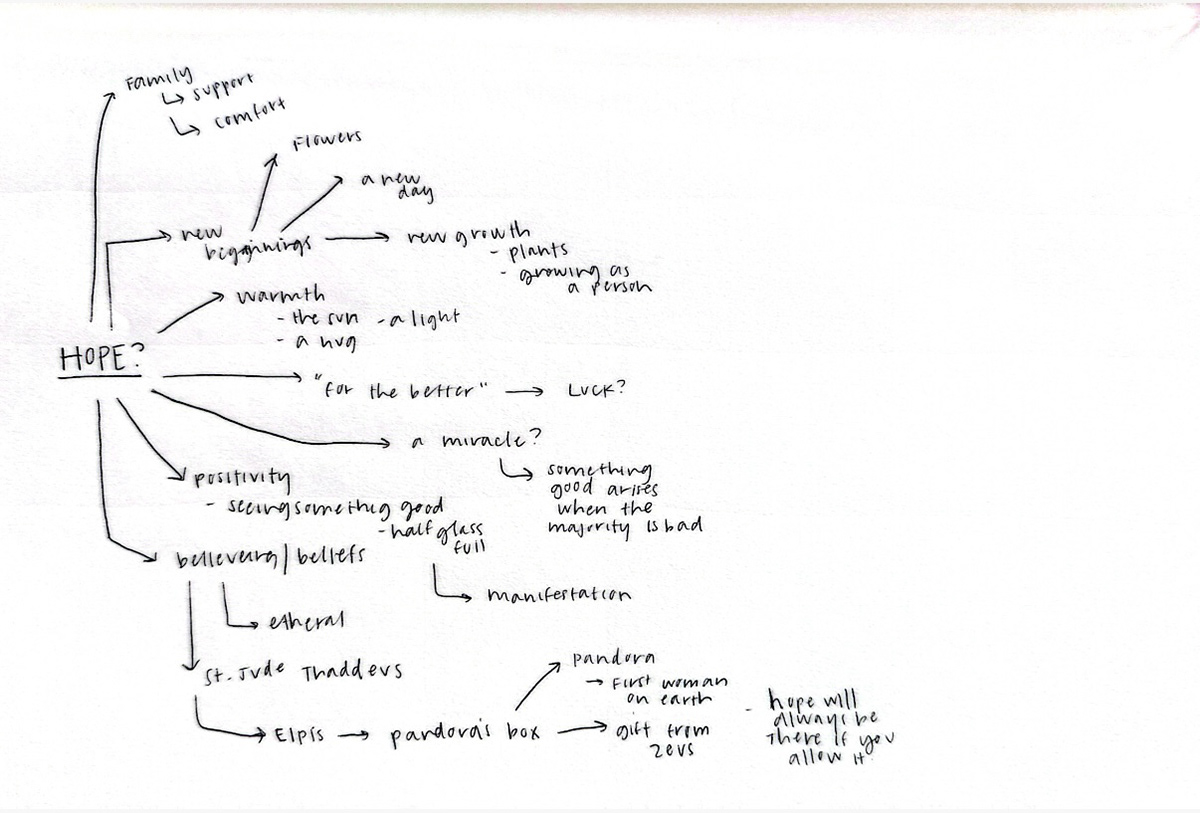 Family
↳ support
↳ comfort
Flowers
a new
day
new
biggnnings
new growth
- plants
- growing as
a person
warmth
- the sun - a light
- a hug
HOPE?
"for the better" → LUCK?
a miracle?
↳ something
good arises
when the
majority is bad
positivity
- seeing somethig good
- half glass
full
manifestation
believeing/beliefs
etheral
St. Jude Thaddeus
Elpis → pandora's box
pandora
→ First woman
on earth
gift from
zeus
- hope will
always be
There if you
allow it